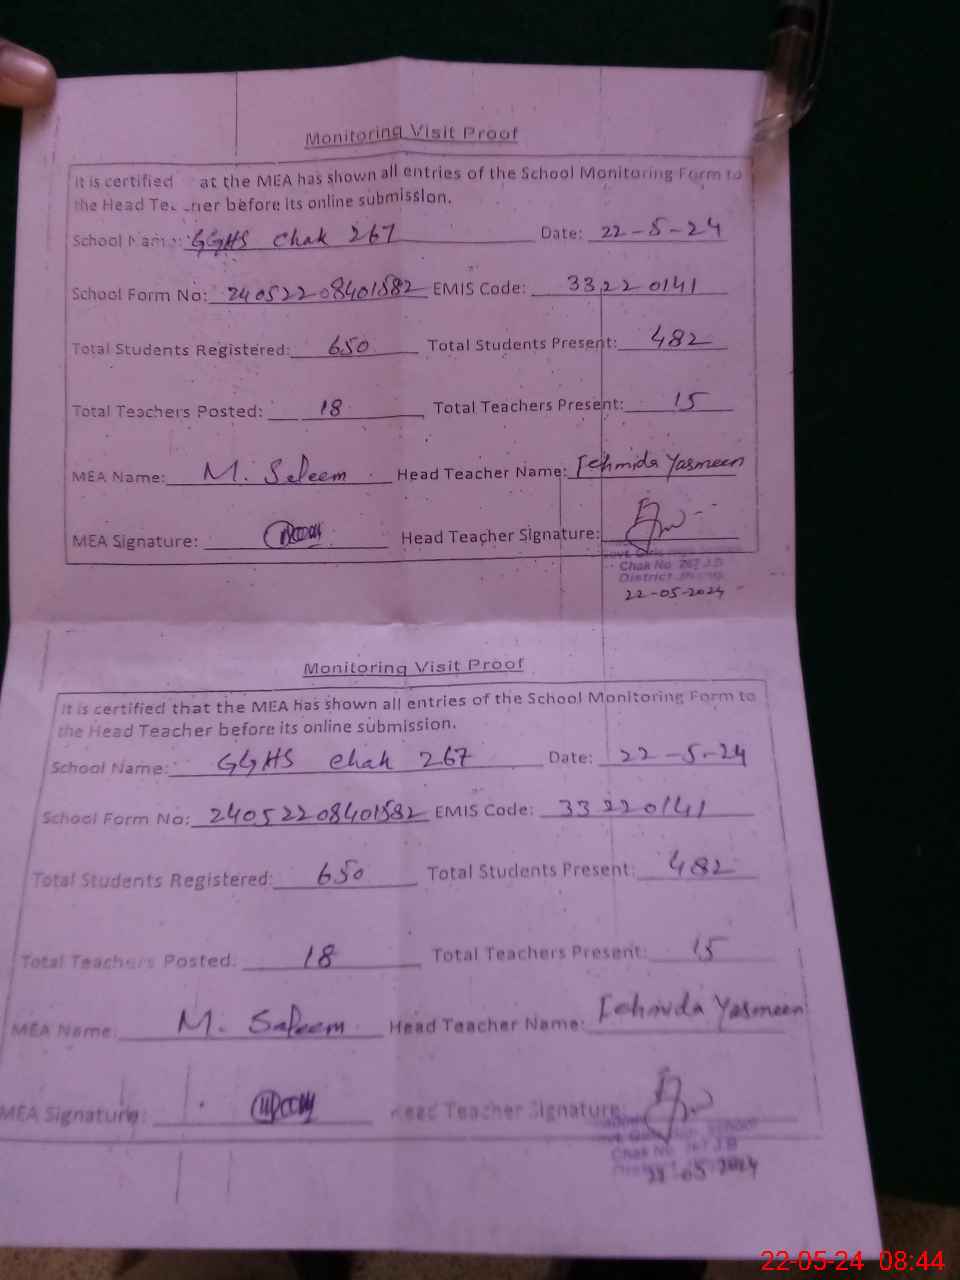 Monitoring Visit Proof
It is certified at the MEA has shown all entries of the School Monitoring Form to
the Head before its online submission.
School Name: GGHS Chak 267 Date: 22-5-24
School Form No: 24052208401582 EMIS Code: 33220141
Total Students Registered: 650 Total Students Present: 482
Total Teachers Posted: 18 Total Teachers Present: 15
MEA Name: M. Saleem Head Teacher Name: Tehmida Yasmeen
MEA Signature: Head Teacher Signature:
Chak No 267 J.B
District
22-05-2024
Monitoring Visit Proof
It is certified that the MEA has shown all entries of the School Monitoring Form to
the Head Teacher before its online submission.
School Name: GGHS Chak 267 Date: 22-5-24
School Form No: 24052208401582 EMIS Code: 33220141
Total Students Registered: 650 Total Students Present: 482
Total Teachers Posted: 18 Total Teachers Present: 15
MEA Name: M. Saleem Head Teacher Name: Tehmida Yasmeen
MEA Signature: Head Teacher Signature:
School
Chak No 267 J.B
22-05-2024
22-05-24 08:44